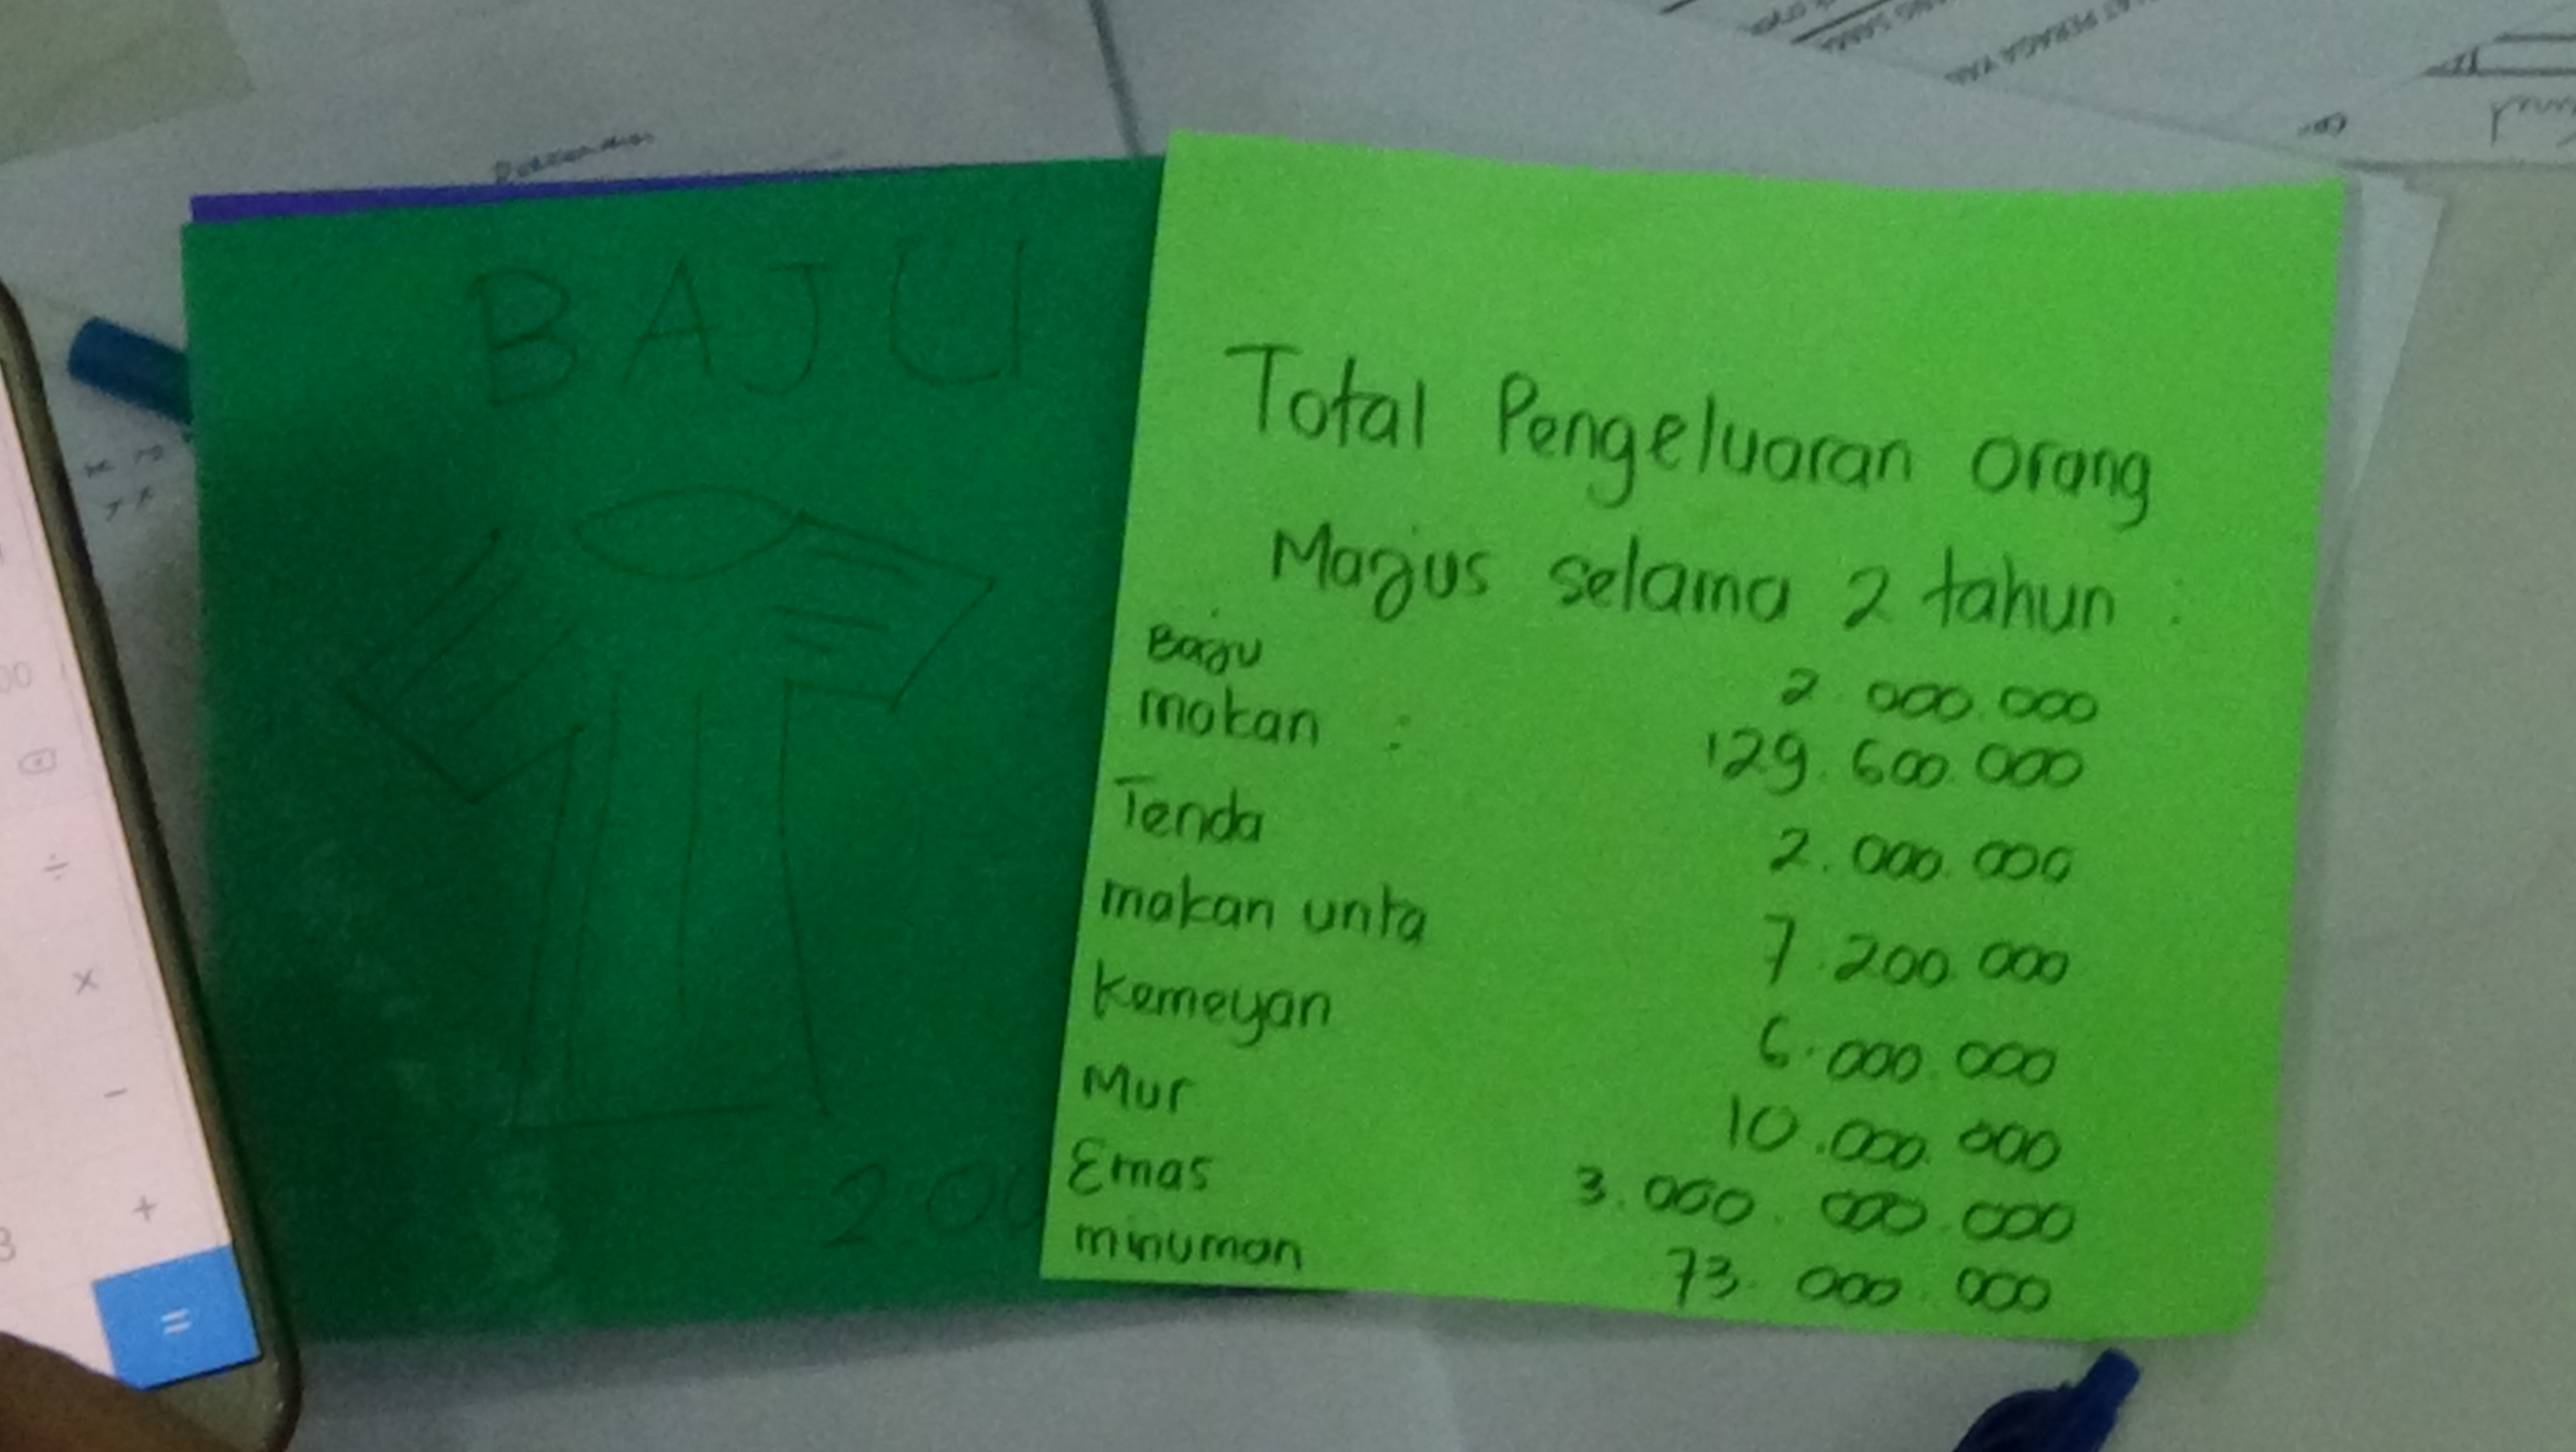 BAJU
2.00
Total Pengeluaran orang
Majus selama 2 tahun :
Baju 2.000.000
makan : 129.600.000
Tenda 2.000.000
makan unta 7.200.000
Kemeyan 6.000.000
Mur 10.000.000
Emas 3.000.000.000
minuman 73.000.000
÷
×
−
+
3
=